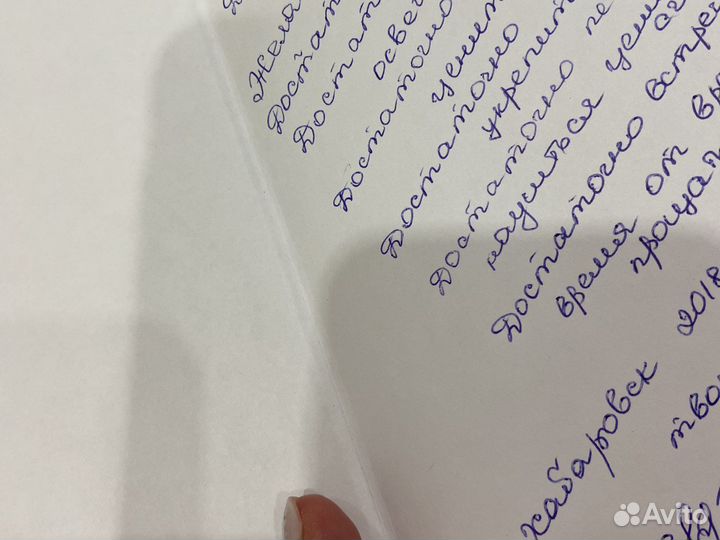 Жела
Достат
Достат
осве
Достаточно
ценит
Достаточно
укрепит
Достаточно пе
научиться цени
Достаточно встре
время от вр
проща
Хабаровск 2018
тво
Avito